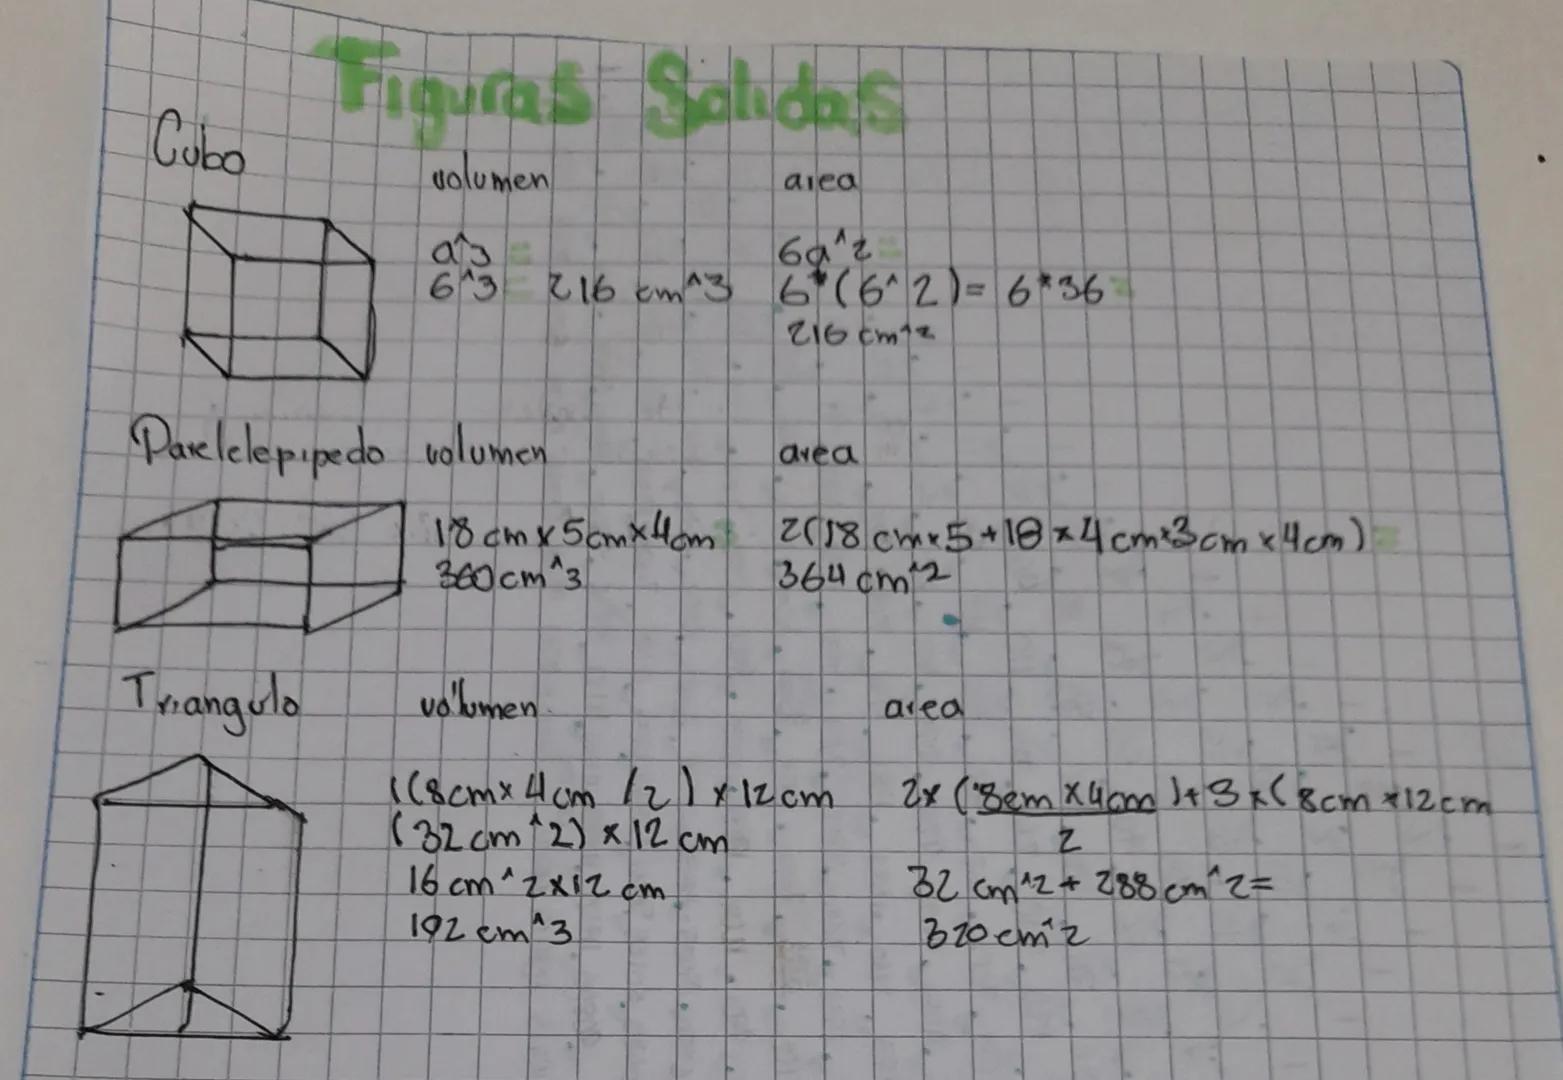 Figuras Solidas
Cubo
volumen
area
a^3 =
6^3 = 216 cm^3
6a^2 =
6*(6^2)= 6*36 =
216 cm^2
Parelelepipedo
volumen
area
18 cm x 5cm x 4cm =
360 cm^3
2(18 cm x 5 + 18 x 4 cm x 3 cm x 4cm) =
364 cm^2
Triangulo
volumen
area
((8cm x 4cm /2) x 12 cm
(32 cm^2) x 12 cm
16 cm^2 x 12 cm
192 cm^3
2x (8cm x 4cm) + 3 x (8cm x 12cm
2
32 cm^2 + 288 cm^2 =
320 cm^2